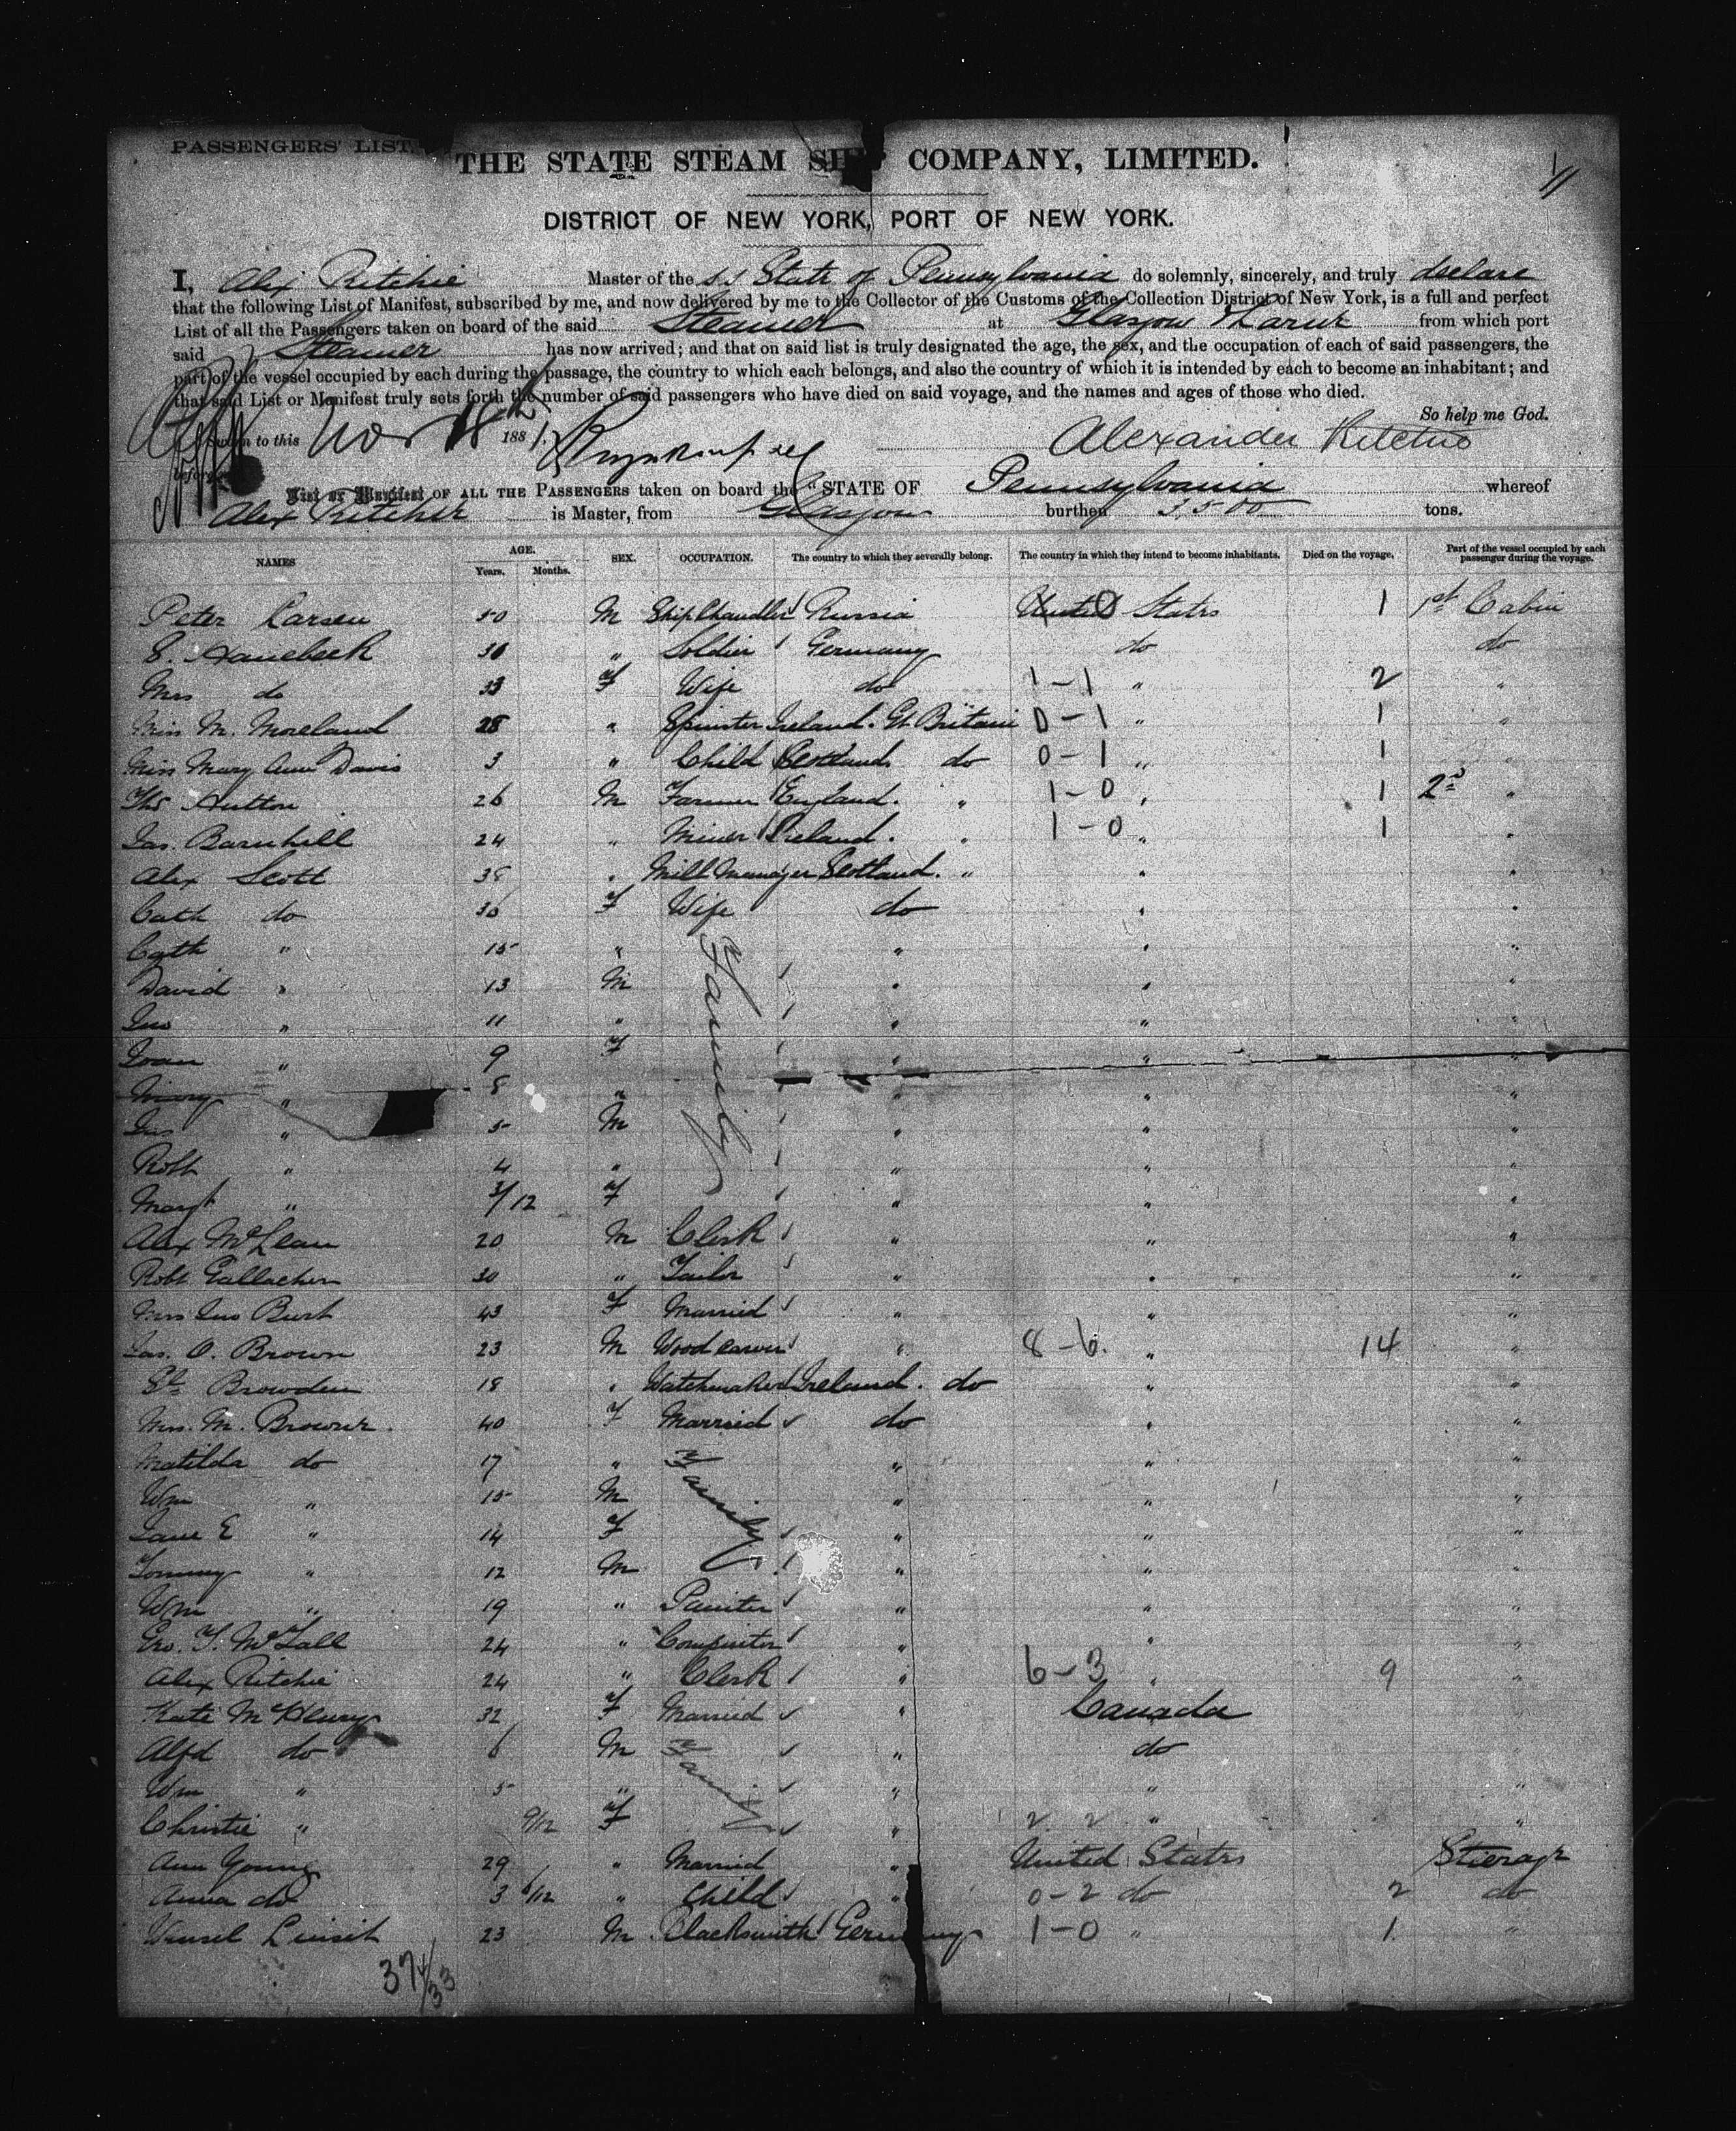 PASSENGERS' LIST.
THE STATE STEAM SHIP COMPANY, LIMITED.
DISTRICT OF NEW YORK, PORT OF NEW YORK.
I, Alex Ritchie Master of the S.S State of Pennsylvania do solemnly, sincerely, and truly declare
that the following List of Manifest, subscribed by me, and now delivered by me to the Collector of the Customs of the Collection District of New York, is a full and perfect
List of all the Passengers taken on board of the said Steamer at Glasgow & Larne from which port
said Steamer has now arrived; and that on said list is truly designated the age, the sex, and the occupation of each of said passengers, the
part of the vessel occupied by each during the passage, the country to which each belongs, and also the country of which it is intended by each to become an inhabitant; and
that said List or Manifest truly sets forth the number of said passengers who have died on said voyage, and the names and ages of those who died.
So help me God.
Sworn to this Nov 18th 1881. Alexander Ritchie
before
List or Manifest OF ALL THE PASSENGERS taken on board the "STATE OF Pennsylvania whereof
Alex Ritchie is Master, from Glasgow burthen 3500 tons.
NAMES AGE. Years. Months. SEX. OCCUPATION. The country to which they severally belong. The country in which they intend to become inhabitants. Died on the voyage. Part of the vessel occupied by each passenger during the voyage.
Peter Larsen 50 M Ship Chandler Russia United States 1 1st Cabin
30 " Soldier Germany do do
Mrs do 33 F Wife do 1-1 " 2 "
Miss M. Moreland 28 " Spinster Ireland. Gt Britain 0-1 " 1 "
Miss Mary Ann Davis 3 " Child Scotland do 0-1 " 1 "
Thos Hutton 26 M Farmer England. " 1-0 " 1 2nd "
Jas. Barnhill 24 " Miner Ireland. " 1-0 " 1 "
Alex Scott 38 " Mill Manager Scotland. " " "
Cath do 36 F Wife do " "
Cath " 15 " Family " " "
David " 13 M " " "
Jno " 11 " " " "
Joan " 9 F " " "
" 8 " " " "
" 5 M " " "
Robt " 4 " " " "
Margt " 3/12 F " " "
Alex McLean 20 M Clerk " " "
Robt Gallacher 30 " Tailor " " "
Mrs Jno Burt 43 F Married " " "
Jas. O. Brown 23 M Wood carver " 8-6. " 14 "
Browden 18 " Watchmaker Ireland. do " "
Mrs. M. Browne. 40 F Married do " "
Matilda do 17 " Family " " "
Wm " 15 M " " "
Jane E " 14 F " " "
Tommy " 12 M " " "
Wm " 19 " Painter " " "
Geo. T. McFall 24 " Compositor " " "
Alex Ritchie 24 " Clerk " 6-3 " 9 "
Kate McHenry 32 F Married " Canada
Alfd do 6 M Family " do
Wm " 5 " " " "
Christie " 9/12 F " 2 2 " "
Ann Young 29 " Married " United States Steerage
Anna do 3 6/12 " Child " 0-2 do 2 do
23 M Blacksmith Germany 1-0 " 1 "
37
33